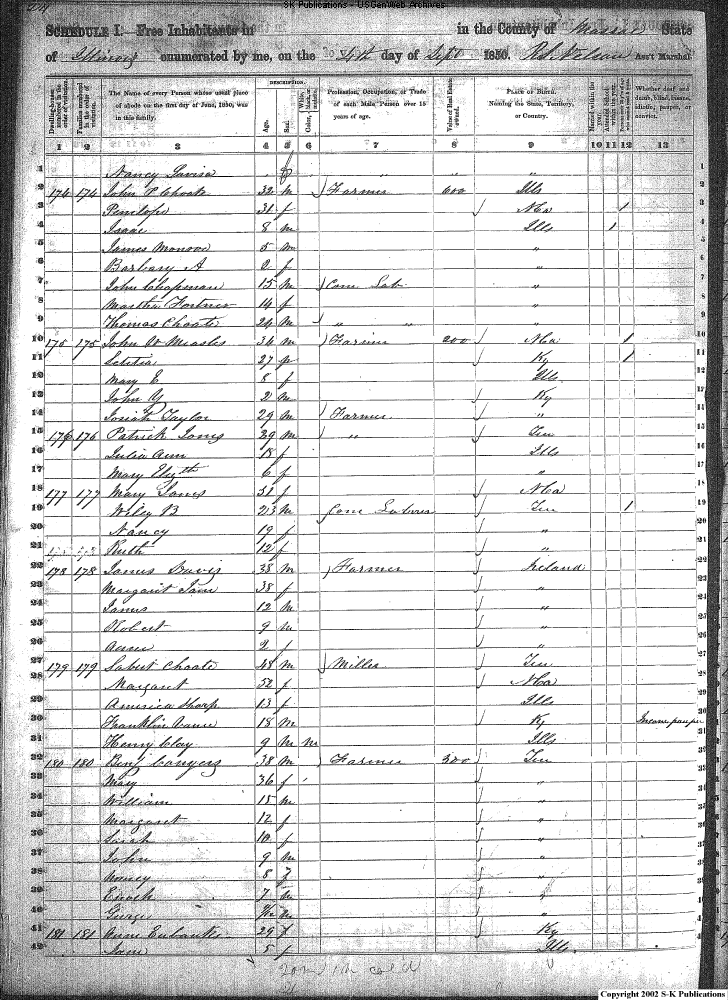 SK Publications - USGenWeb Archives
SCHEDULE I. Free Inhabitants in in the County of State
of Illinois enumerated by me, on the 4th day of Sept 1850. Ass't Marshal.
DESCRIPTION.
Dwelling-houses numbered in the order of visitation. Families numbered in the order of visitation. The Name of every Person whose usual place of abode on the first day of June, 1850, was in this family. Age. Sex. Color, White, black, or mulatto. Profession, Occupation, or Trade of each Male Person over 15 years of age. Value of Real Estate owned. PLACE OF BIRTH. Naming the State, Territory, or Country. Married within the year. Attended School within the year. Whether deaf and dumb, blind, insane, idiotic, pauper, or convict.
1 2 3 4 5 6 7 8 9 10 11 12 13
1 Nancy f " " "
2 174 174 John P Choate 32 m Farmer 600 Ills
3 Penelope 31 f 1
4 Isaac 8 m Ills 1
5 James Monroe 5 m "
6 Barbary A 2 f "
7 John Chapman 15 m Com Lab "
8 Martha 14 f "
9 Thomas Choate 24 m " " "
10 175 175 John W Measles 34 m Farmer 200 1
11 Letitia 27 Ky 1
12 Mary E 8 f Ills
13 John Y 2 m Ky
14 Josiah Taylor 29 m Farmer "
15 176 176 Patrick Jones 29 m " Ten
16 Julia Ann 18 f Ills
17 Mary Elizth 6 f "
18 177 177 Mary Jones 51 f
19 Wiley B 23 m Com Ten 1
20 Nancy 19 f "
21 Ruth 12 f "
22 178 178 James Davis 38 m Farmer Ireland
23 Margaret Jane 38 f "
24 James 12 m "
25 Robert 9 m "
26 2 f "
27 179 179 Choate 48 m Miller Ten
28 Margaret 52 f
29 America Sharp 13 f Ills
30 Franklin 18 m Ky
31 Henry Clay 9 m m Ills
32 180 180 Benj Conyers 38 m Farmer 300 Ten
33 Mary 36 f "
34 William 15 m "
35 Margaret 12 f "
36 Sarah 10 f "
37 John 9 m "
38 8 f "
39 Enoch 7 m "
40 George m "
41 181 181 Eubanks 29 f Ky
42 Jane 5 f Ills.
Copyright 2002 S-K Publications